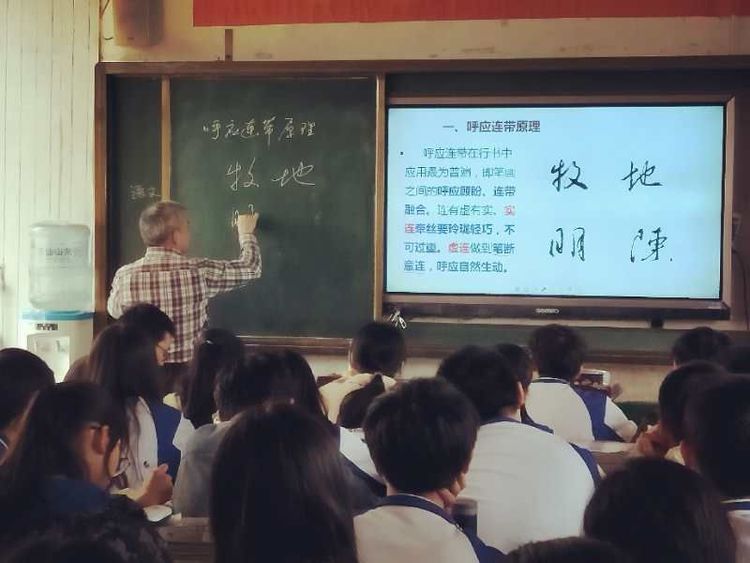 呼应连带原理
牧地
语文
一、呼应连带原理
呼应连带在行书中
应用最为普遍，即笔画
之间的呼应顾盼、连带
融合。连有虚有实。实
连牵丝要玲珑轻巧，不
可过重。虚连做到笔断
意连，呼应自然生动。
牧 地
明 陳